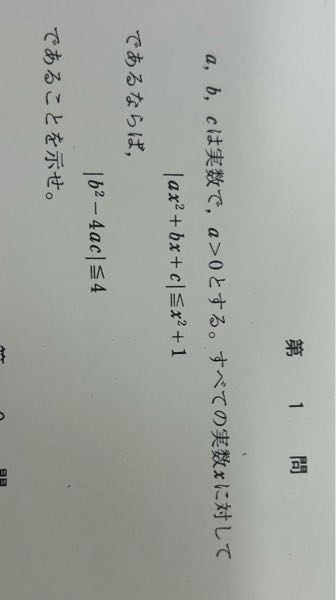 第 1 問
a, b, c は実数で, a>0 とする。すべての実数 x に対して
|ax²+bx+c|≦x²+1
であるならば,
|b²−4ac|≦4
であることを示せ。